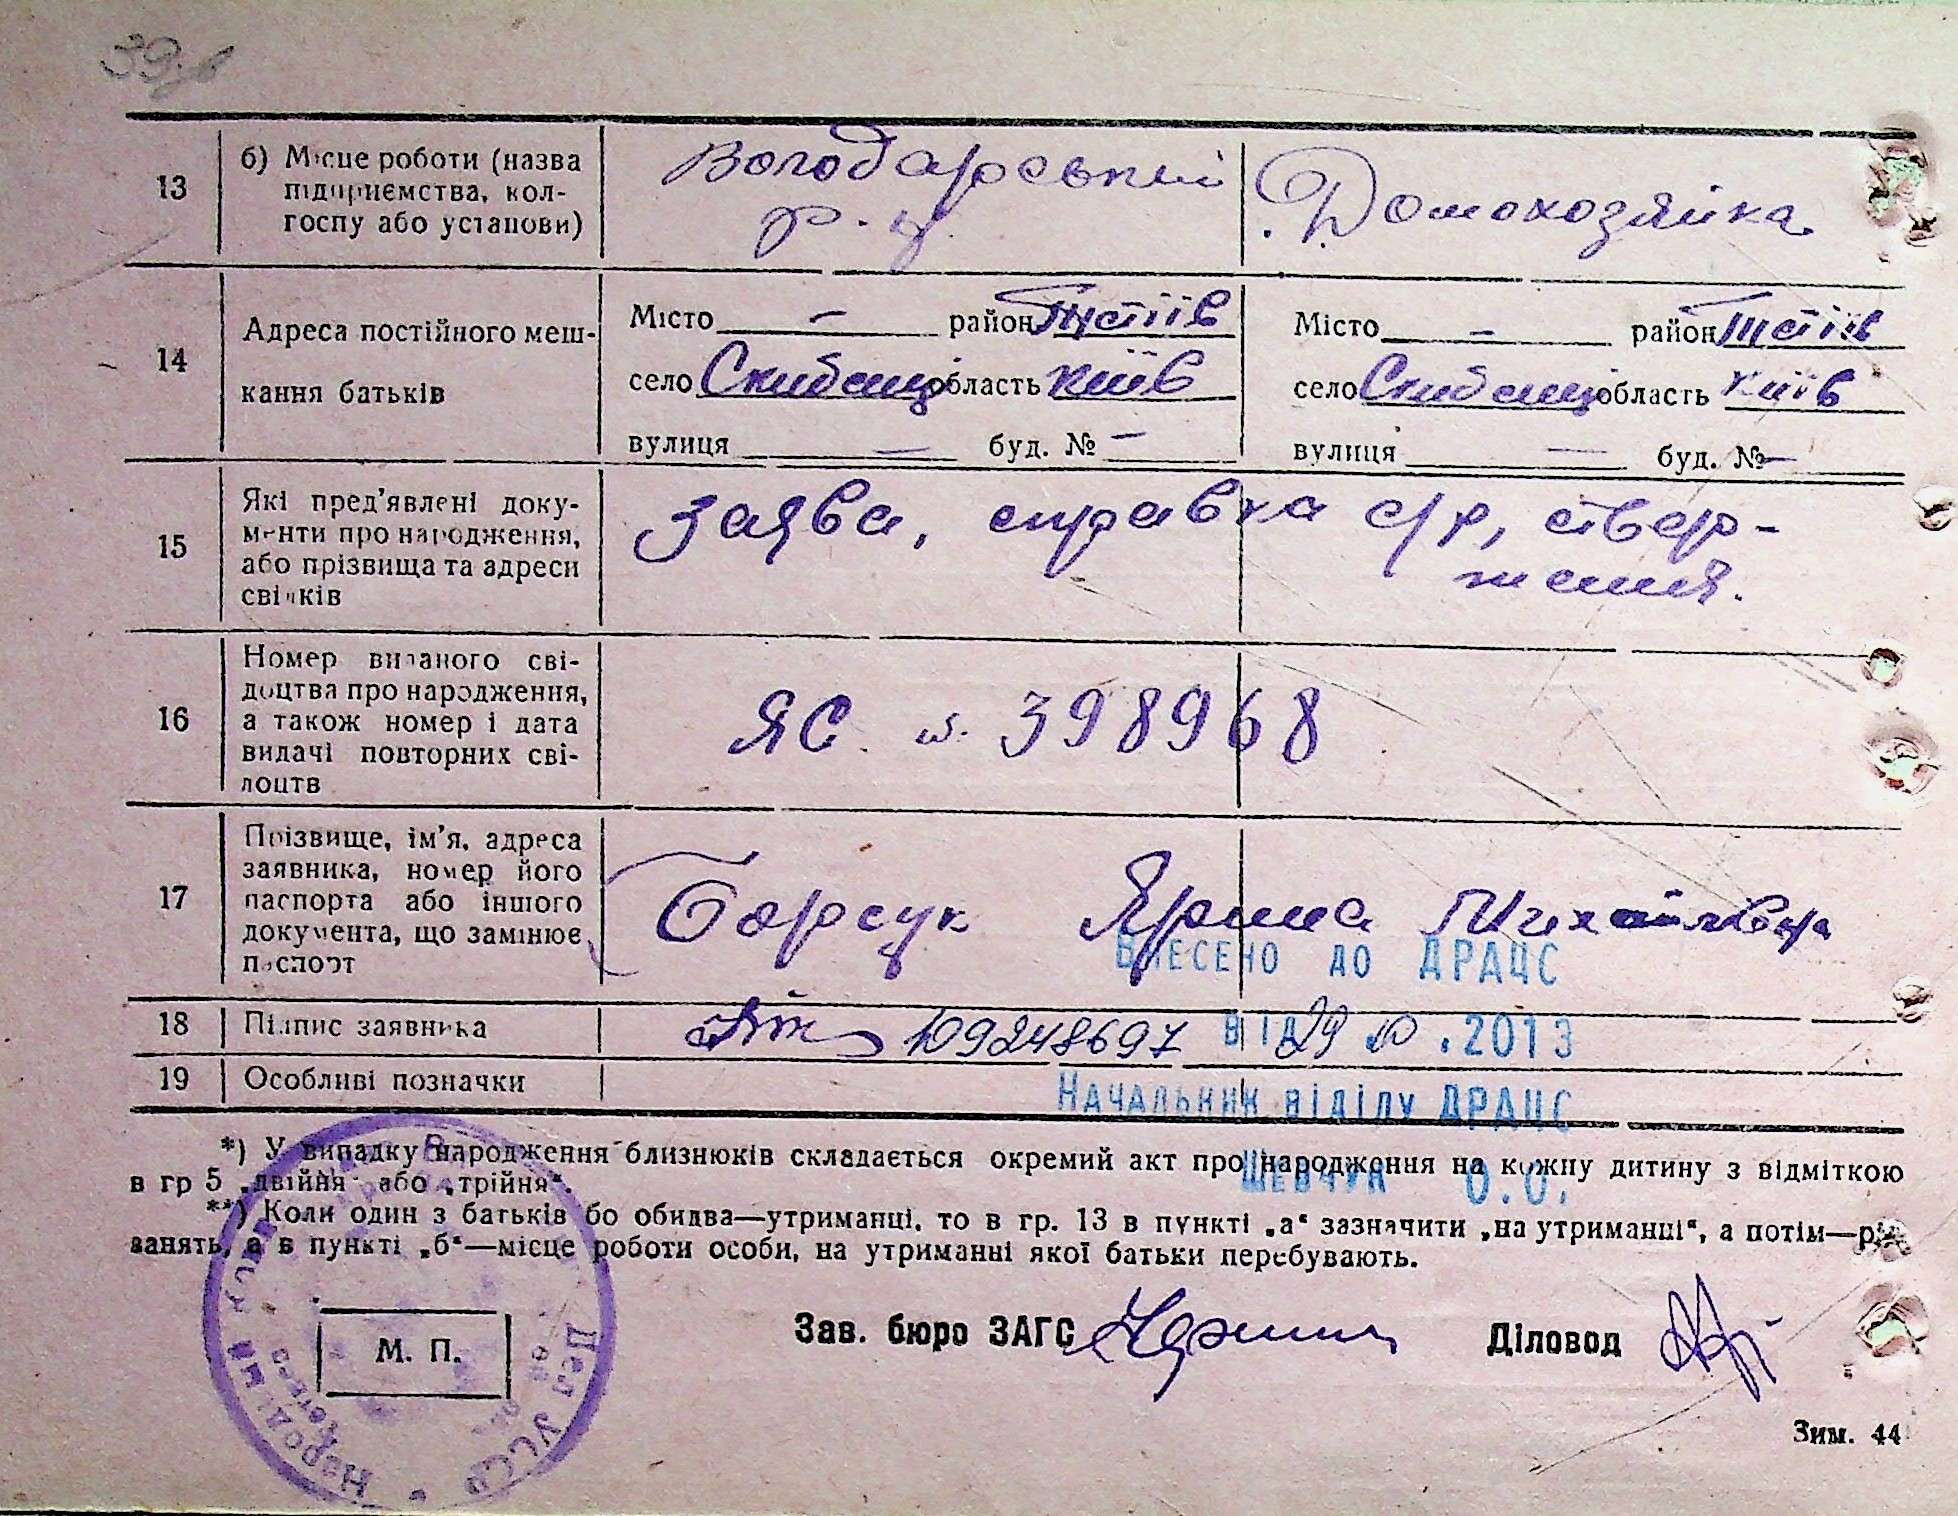 39
13
б) Місце роботи (назва
підприємства, кол-
госпу або установи)
Володарський
р.
Домохозяйка
14
Адреса постійного меш-
кання батьків
Місто — район Тетіїв
село Скибенці область Київ
вулиця — буд. № —
Місто — район Тетіїв
село Скибенці область Київ
вулиця — буд. № —
15
Які пред'явлені доку-
менти про народження,
або прізвища та адреси
свідків
Заява, справка с/р, ствер-
ження.
16
Номер виданого сві-
доцтва про народження,
а також номер і дата
видачі повторних сві-
доцтв
ЯС № 398968
17
Прізвище, ім'я, адреса
заявника, номер його
паспорта або іншого
документа, що замінює
паспорт
Борсук Ярина Михайлівна
ВНЕСЕНО ДО ДРАЦС
18
Підпис заявника
109248697
ВІД 29.10.2013
19
Особливі позначки
НАЧАЛЬНИК ВІДІЛУ ДРАЦС
ШЕВЧУК О.О.
*) У випадку народження близнюків складається окремий акт про народження на кожну дитину з відміткою
в гр 5 „двійня" або „трійня".
**) Коли один з батьків бо обидва—утриманці, то в гр. 13 в пункті „а" зазначити „на утриманці", а потім—рід
занять, а в пункті „б"—місце роботи особи, на утриманні якої батьки перебувають.
М. П.
УССР
Зав. бюро ЗАГС
Діловод
Зим. 44